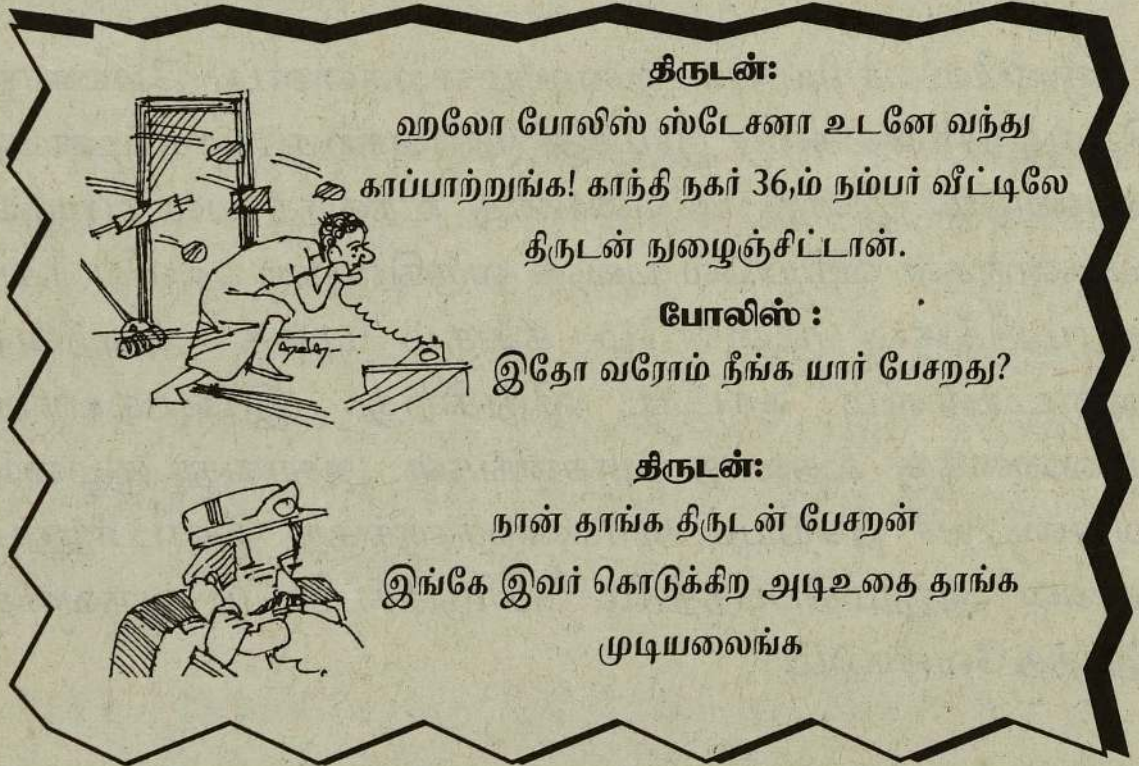 திருடன்:
ஹலோ போலிஸ் ஸ்டேசனா உடனே வந்து
காப்பாற்றுங்க! காந்தி நகர் 36,ம் நம்பர் வீட்டிலே
திருடன் நுழைஞ்சிட்டான்.
போலிஸ் :
இதோ வரோம் நீங்க யார் பேசறது?
திருடன்:
நான் தாங்க திருடன் பேசறன்
இங்கே இவர் கொடுக்கிற அடிஉதை தாங்க
முடியலைங்க